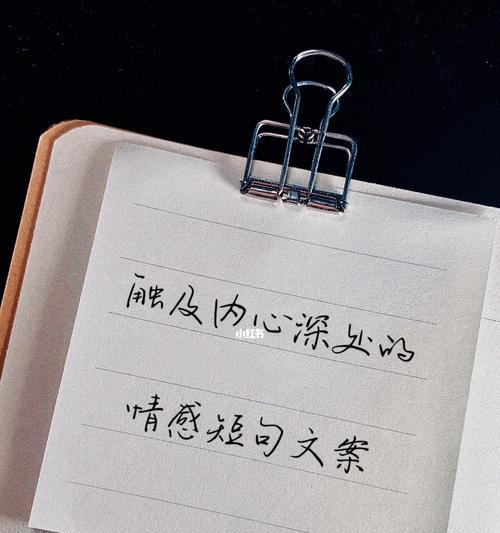 触及内心深处的
小红书
情感短句文案